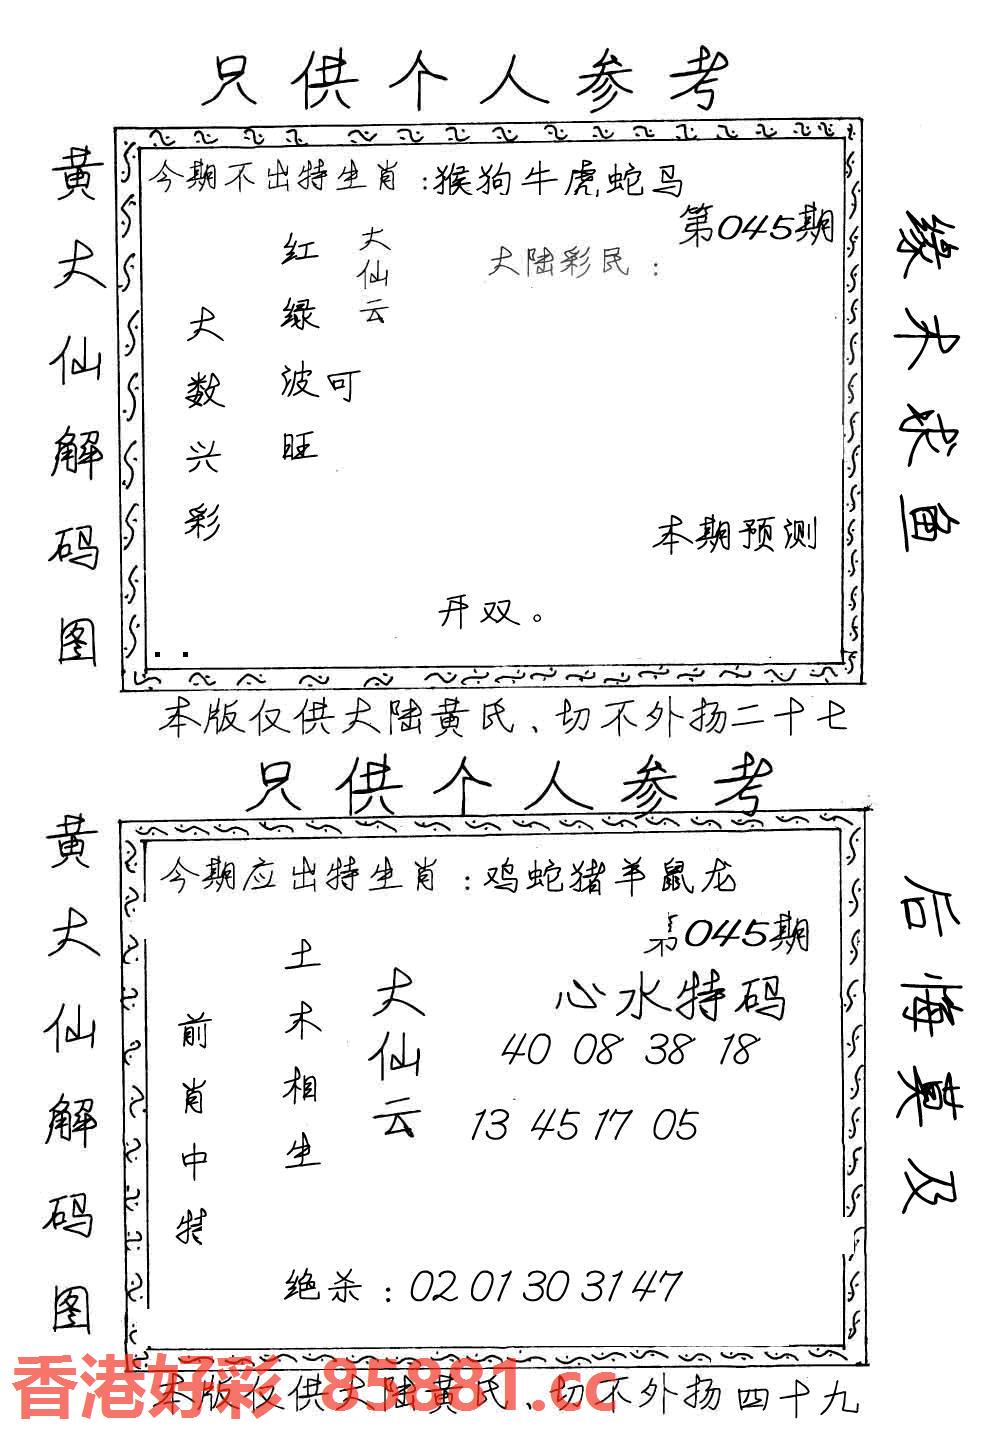 只供个人参考
黄大仙解码图
今期不出特生肖：猴狗牛虎蛇马
第045期
大陆彩民：
大仙云
红绿波旺
可
大数兴彩
本期预测
开双。
缘木求鱼
本版仅供大陆黄氏、切不外扬二十七
只供个人参考
黄大仙解码图
今期应出特生肖：鸡蛇猪羊鼠龙
第045期
心水特码
40 08 38 18
13 45 17 05
大仙云
土木相生
前肖中特
绝杀：02 01 30 31 47
后悔莫及
香港好彩 85881.cc
本版仅供大陆黄氏、切不外扬四十九